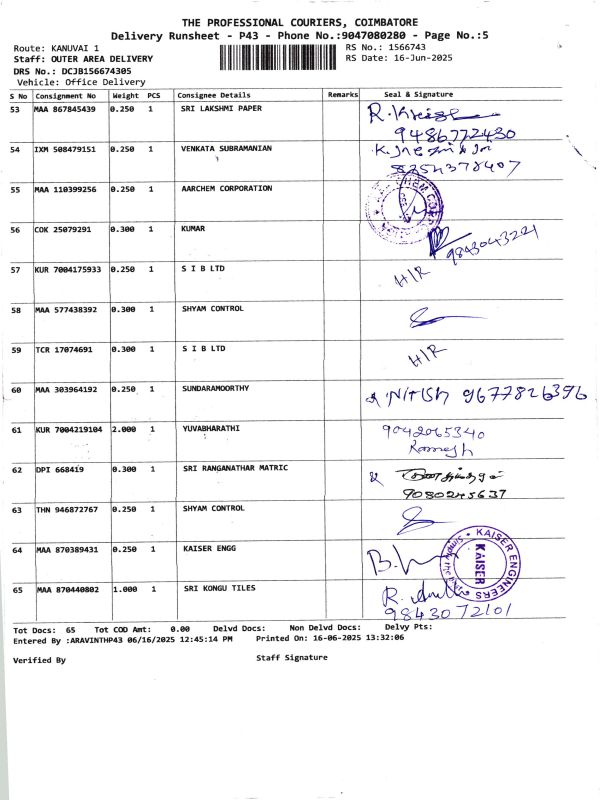 THE PROFESSIONAL COURIERS, COIMBATORE
Delivery Runsheet - P43 - Phone No.:9047080280 - Page No.:5
Route: KANUVAI 1 RS No.: 1566743
Staff: OUTER AREA DELIVERY RS Date: 16-Jun-2025
DRS No.: DCJB156674305
Vehicle: Office Delivery
S No Consignment No Weight PCS Consignee Details Remarks Seal & Signature
53 MAA 867845439 0.250 1 SRI LAKSHMI PAPER
9486772430
54 IXM 508479151 0.250 1 VENKATA SUBRAMANIAN
8252378407
55 MAA 110399256 0.250 1 AARCHEM CORPORATION
56 COK 25079291 0.300 1 KUMAR
9843043221
57 KUR 7004175933 0.250 1 S I B LTD H/R
58 MAA 577438392 0.300 1 SHYAM CONTROL
59 TCR 17074691 0.300 1 S I B LTD H/R
60 MAA 303964192 0.250 1 SUNDARAMOORTHY NITISH 9677826396
61 KUR 7004219104 2.000 1 YUVABHARATHI 9042065340
Ramesh
62 DPI 668419 0.300 1 SRI RANGANATHAR MATRIC
9080245637
63 THN 946872767 0.250 1 SHYAM CONTROL
64 MAA 870389431 0.250 1 KAISER ENGG KAISER ENGINEERS
KAISER
65 MAA 870440802 1.000 1 SRI KONGU TILES
9843072101
Tot Docs: 65 Tot COD Amt: 0.00 Delvd Docs: Non Delvd Docs: Delvy Pts:
Entered By :ARAVINTHP43 06/16/2025 12:45:14 PM Printed On: 16-06-2025 13:32:06
Verified By Staff Signature